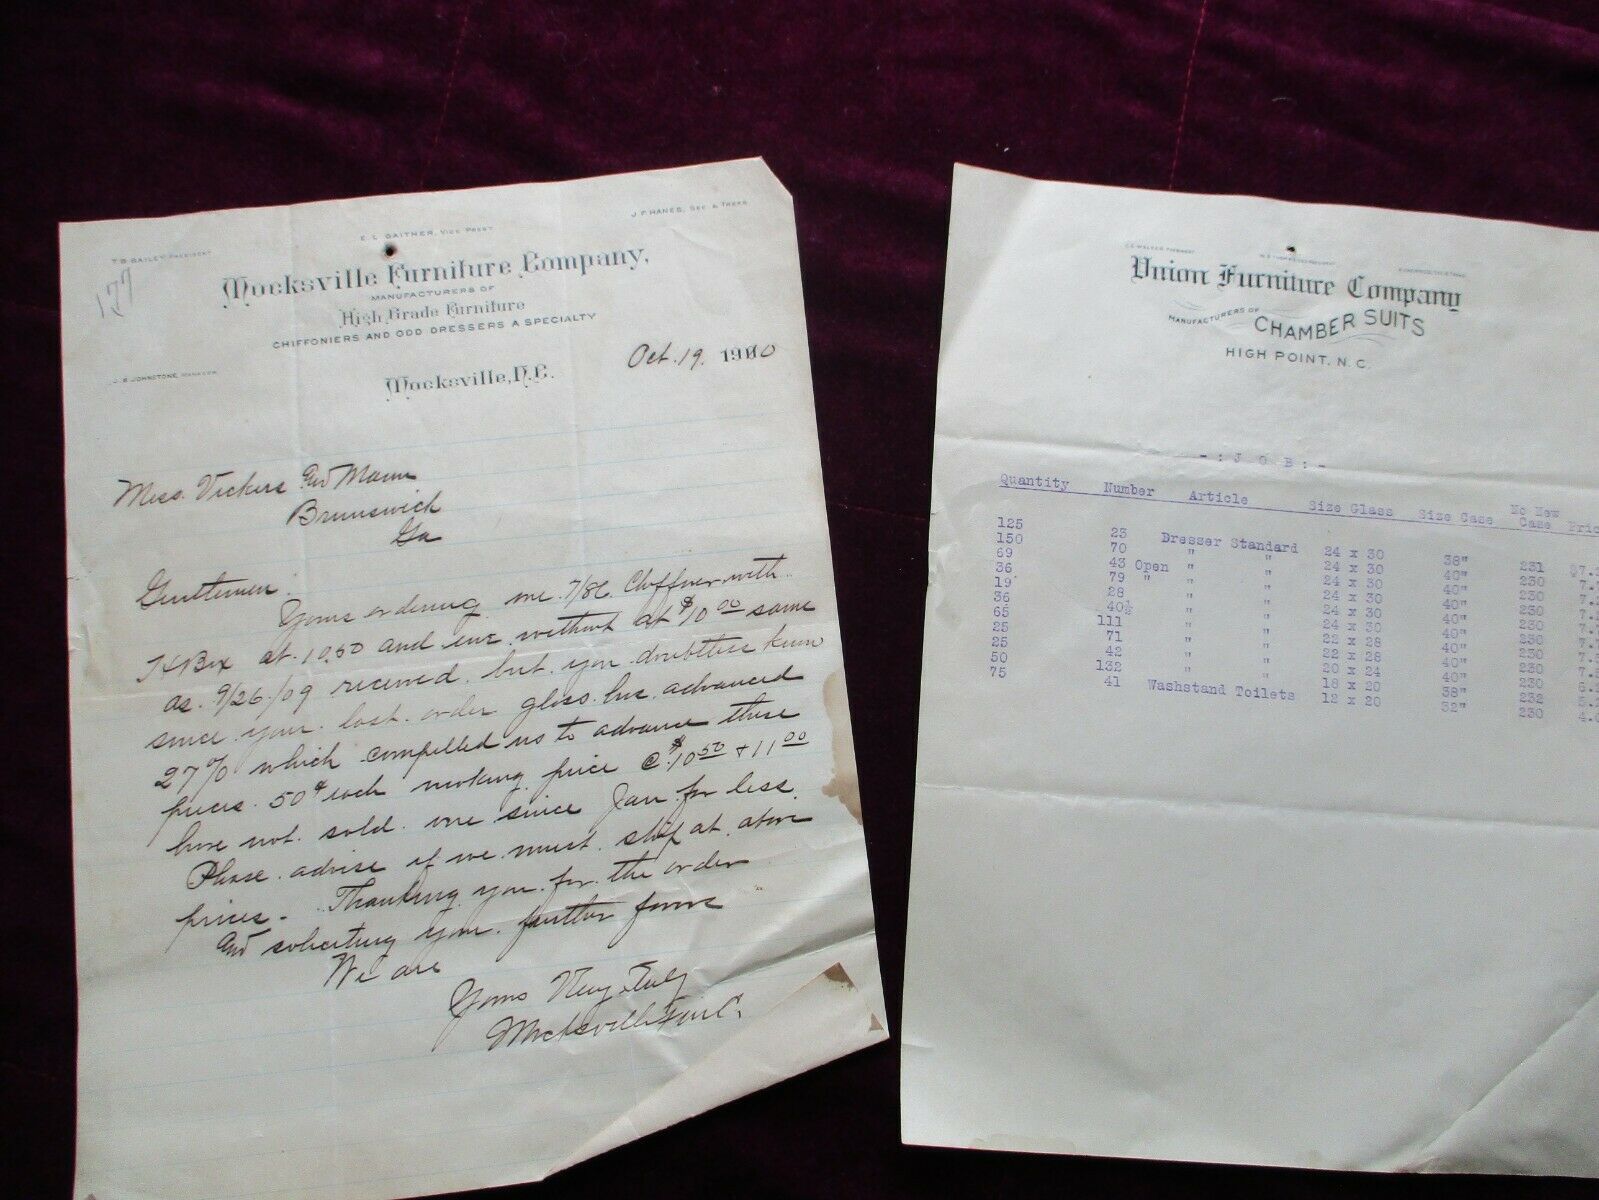 J. F. HANES, SEC. & TREAS
E. L. GAITHER, VICE PREST
T. B. BAILEY, PRESIDENT
127
Mocksville Furniture Company,
MANUFACTURERS OF
High Grade Furniture
CHIFFONIERS AND ODD DRESSERS A SPECIALTY
J. B. JOHNSTONE, MANAGER
Mocksville, N.C.
Oct. 19. 1900
Mess. Vickers and Mann
Brunswick
Ga
Gentlemen.
Yours ordering one 7/86 with
Box at 10.50 and one without at $10.00 same
as 9/26/09 received. but you doubtless know
since your last order glass has advanced
27% which compelled us to advance these
prices 50¢ each making price @ $10.50 + 11.00
have not sold one since Jan for less.
Please advise if we must ship at above
prices - Thanking you for the order
and soliciting your further favors
We are
Yours Very Truly
Mocksville Fur Co.
Union Furniture Company
MANUFACTURERS OF
CHAMBER SUITS
HIGH POINT, N. C.
-:JOB:-
Quantity Number Article Size Glass Size Case No New Case
125 23 Dresser Standard 24 x 30 38" 231
150 70 " " 24 x 30 40" 230
69 43 Open " " 24 x 30 40" 230
36 79 " " " 24 x 30 40" 230
19 28 " " 24 x 30 40" 230
36 40½ " " 24 x 30 40" 230
65 111 " " 22 x 28 40" 230
25 71 " " 22 x 28 40" 230
25 42 " " 20 x 24 40" 230
50 132 " " 18 x 20 38" 232
75 41 Washstand Toilets 12 x 20 32" 230